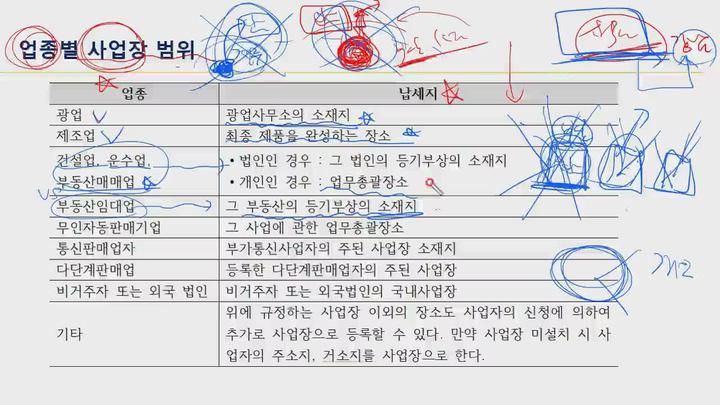 업종별 사업장 범위
업종 납세지
광업 광업사무소의 소재지
제조업 최종 제품을 완성하는 장소
건설업, 운수업, • 법인인 경우 : 그 법인의 등기부상의 소재지
부동산매매업 • 개인인 경우 : 업무총괄장소
부동산임대업 그 부동산의 등기부상의 소재지
무인자동판매기업 그 사업에 관한 업무총괄장소
통신판매업자 부가통신사업자의 주된 사업장 소재지
다단계판매업 등록한 다단계판매업자의 주된 사업장
비거주자 또는 외국 법인 비거주자 또는 외국법인의 국내사업장
기타 위에 규정하는 사업장 이외의 장소도 사업자의 신청에 의하여
추가로 사업장으로 등록할 수 있다. 만약 사업장 미설치 시 사
업자의 주소지, 거소지를 사업장으로 한다.